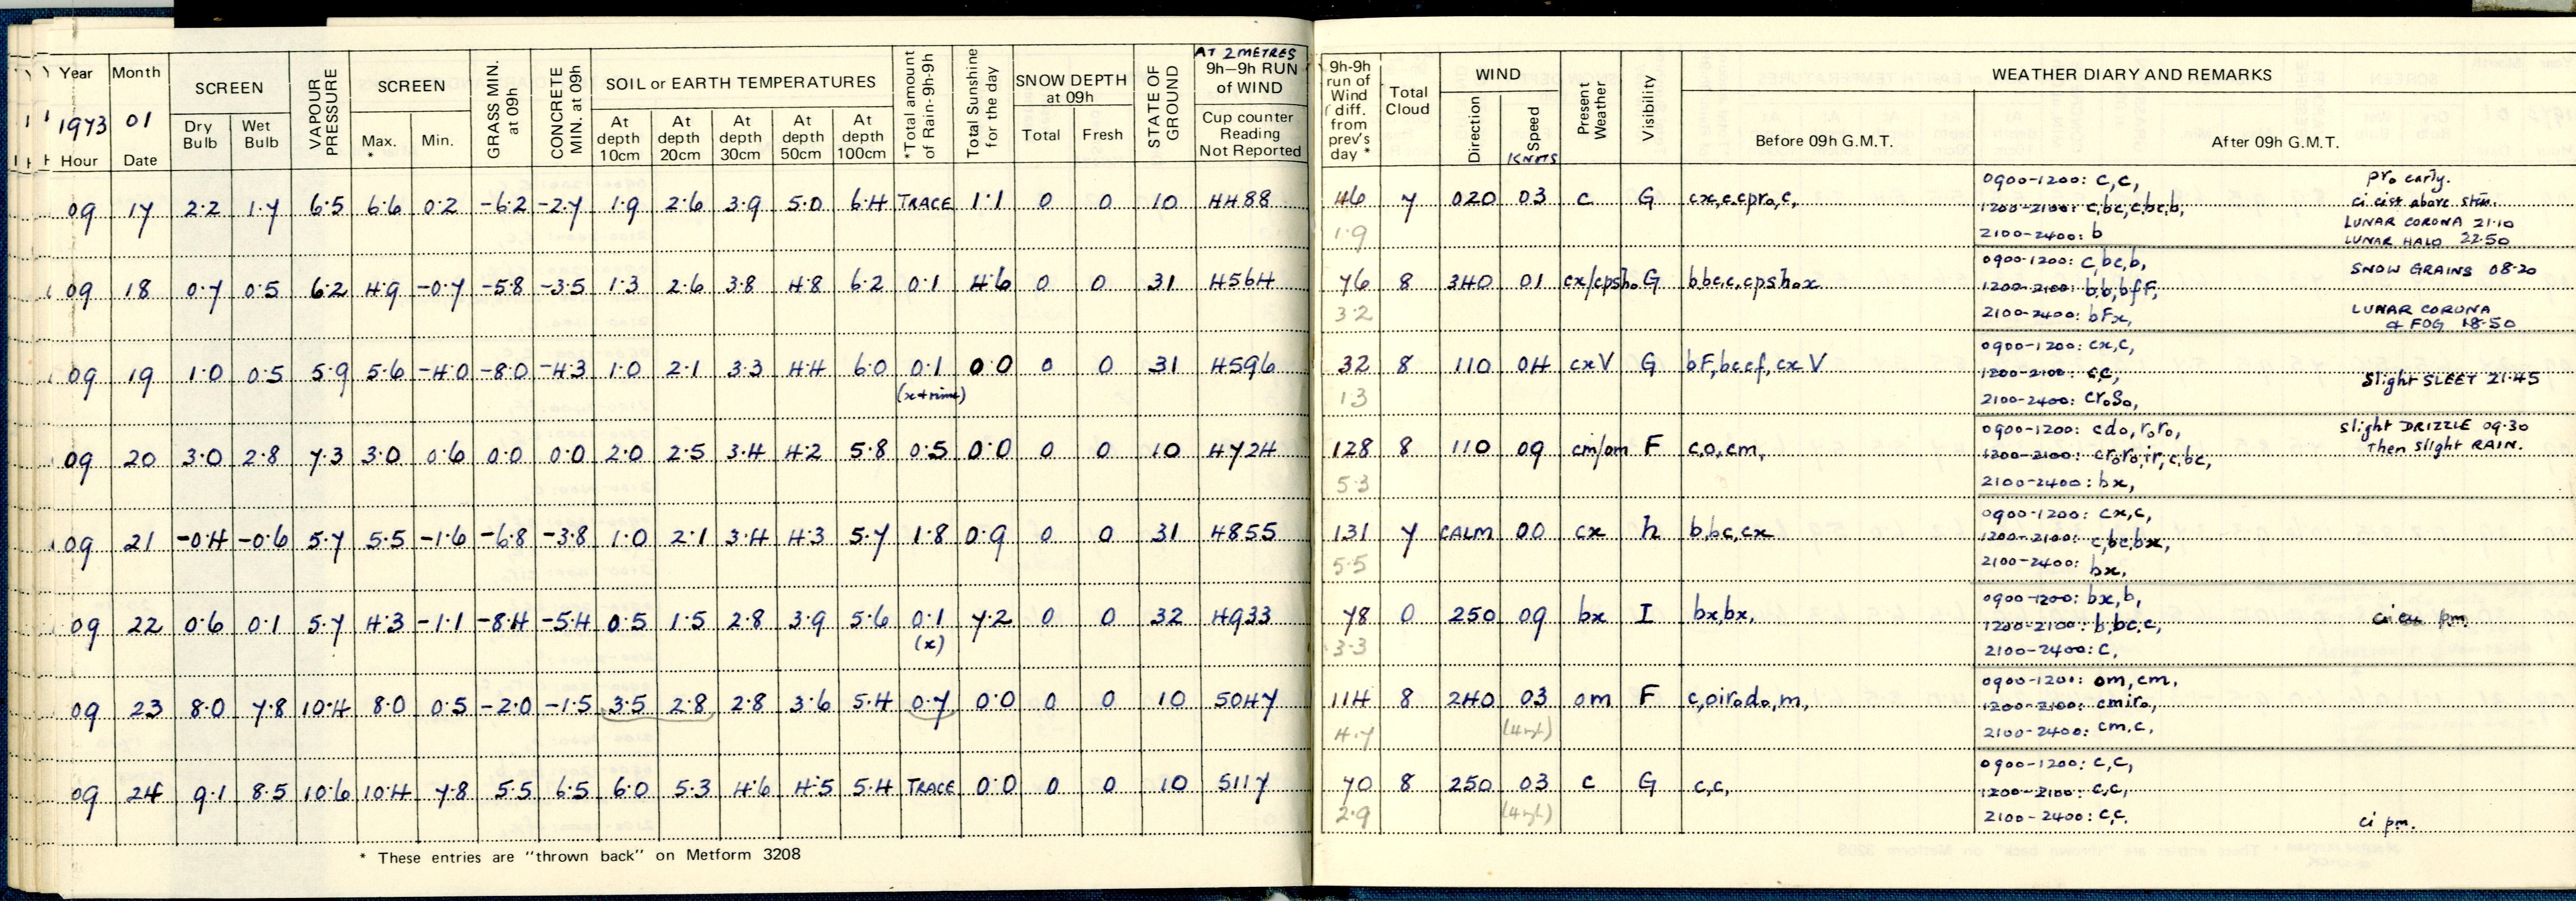 Year Month SCREEN VAPOUR PRESSURE SCREEN GRASS MIN. at 09h CONCRETE MIN. at 09h SOIL or EARTH TEMPERATURES *Total amount of Rain-9h-9h Total Sunshine for the day SNOW DEPTH at 09h STATE OF GROUND AT 2 METRES 9h-9h RUN of WIND
1973 01 Dry Bulb Wet Bulb Max. * Min. At depth 10cm At depth 20cm At depth 30cm At depth 50cm At depth 100cm Total Fresh Cup counter Reading Not Reported
Hour Date
09 17 2.2 1.7 6.5 6.6 0.2 -6.2 -2.7 1.9 2.6 3.9 5.0 6.4 TRACE 1.1 0 0 10 4488
09 18 0.7 0.5 6.2 4.9 -0.7 -5.8 -3.5 1.3 2.6 3.8 4.8 6.2 0.1 4.6 0 0 31 4564
09 19 1.0 0.5 5.9 5.6 -4.0 -8.0 -4.3 1.0 2.1 3.3 4.4 6.0 0.1 0.0 0 0 31 4596
(x+rime)
09 20 3.0 2.8 7.3 3.0 0.6 0.0 0.0 2.0 2.5 3.4 4.2 5.8 0.5 0.0 0 0 10 4724
09 21 -0.4 -0.6 5.7 5.5 -1.6 -6.8 -3.8 1.0 2.1 3.4 4.3 5.7 1.8 0.9 0 0 31 4855
09 22 0.6 0.1 5.7 4.3 -1.1 -8.4 -5.4 0.5 1.5 2.8 3.9 5.6 0.1 7.2 0 0 32 4933
(x)
09 23 8.0 7.8 10.4 8.0 0.5 -2.0 -1.5 3.5 2.8 2.8 3.6 5.4 0.7 0.0 0 0 10 5047
09 24 9.1 8.5 10.6 10.4 7.8 5.5 6.5 6.0 5.3 4.6 4.5 5.4 TRACE 0.0 0 0 10 5117
* These entries are "thrown back" on Metform 3208
9h-9h run of Wind diff. from prev's day * Total Cloud WIND Present Weather Visibility WEATHER DIARY AND REMARKS
Direction Speed KNOTS Before 09h G.M.T. After 09h G.M.T.
0900-1200: c,c, pro early.
46 7 020 03 c G cx,c,cpro,c, 1200-2100: c,bc,c,bc,b, ci cist above
LUNAR CORONA 21.10
1.9 2100-2400: b LUNAR HALO 22.50
0900-1200: c,bc,b, SNOW GRAINS 08.20
76 8 340 01 cx/cpsho G b,bc,c,cpsho,x 1200-2100: b,b,bfF,
3.2 2100-2400: bFx, LUNAR CORONA
& FOG 18.50
0900-1200: cx,c,
32 8 110 04 cxV G bF,bccf,cxV 1200-2100: c,c, slight SLEET 21.45
1.3 2100-2400: croso,
0900-1200: cdo,roro, slight DRIZZLE 09.30
128 8 110 09 cm/om F c,o,cm, 1200-2100: croro,ir,c,bc, then slight RAIN.
5.3 2100-2400: bx,
0900-1200: cx,c,
131 7 CALM 00 cx h b,bc,cx 1200-2100: c,bc,bx,
5.5 2100-2400: bx,
0900-1200: bx,b,
78 0 250 09 bx I bx,bx, 1200-2100: b,bc,c, ci cu pm.
3.3 2100-2400: c,
0900-1201: om,cm,
114 8 240 03 om F c,oirodo,m, 1200-2100: cmiro,
4.7 2100-2400: cm,c,
0900-1200: c,c,
70 8 250 03 c G c,c, 1200-2100: c,c,
2.9 2100-2400: c,c. ci pm.